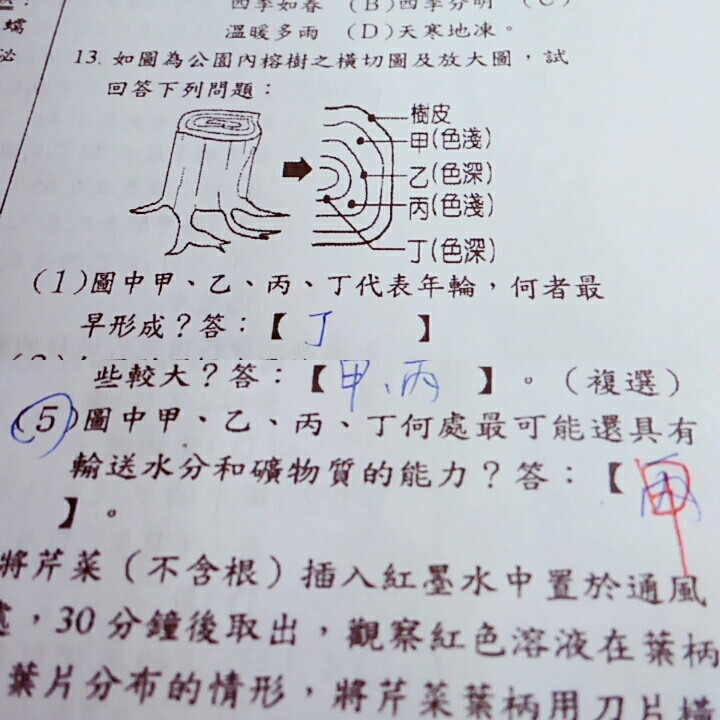 四季如春 (B)四季分明 (C)
溫暖多雨 (D)天寒地凍。
13. 如圖為公園內榕樹之橫切圖及放大圖,試
回答下列問題:
樹皮
甲(色淺)
乙(色深)
丙(色淺)
丁(色深)
(1)圖中甲、乙、丙、丁代表年輪,何者最
早形成?答:【 丁 】
些較大?答:【 甲、丙 】。(複選)
(5)圖中甲、乙、丙、丁何處最可能還具有
輸送水分和礦物質的能力?答:【 甲
】。
將芹菜(不含根)插入紅墨水中置於通風
處,30分鐘後取出,觀察紅色溶液在葉柄
葉片分布的情形,將芹菜葉柄用刀片橫